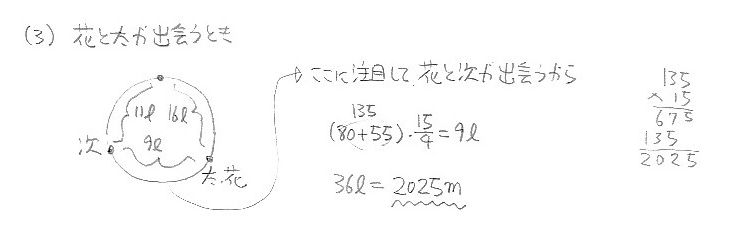 (3) 花と太が出会うとき
11ℓ 16ℓ
9ℓ
次
太.花
ここに注目して、花と次が出会うから
135
(80+55)・15/4=9ℓ
36ℓ=2025m
135
×15
675
135
2025